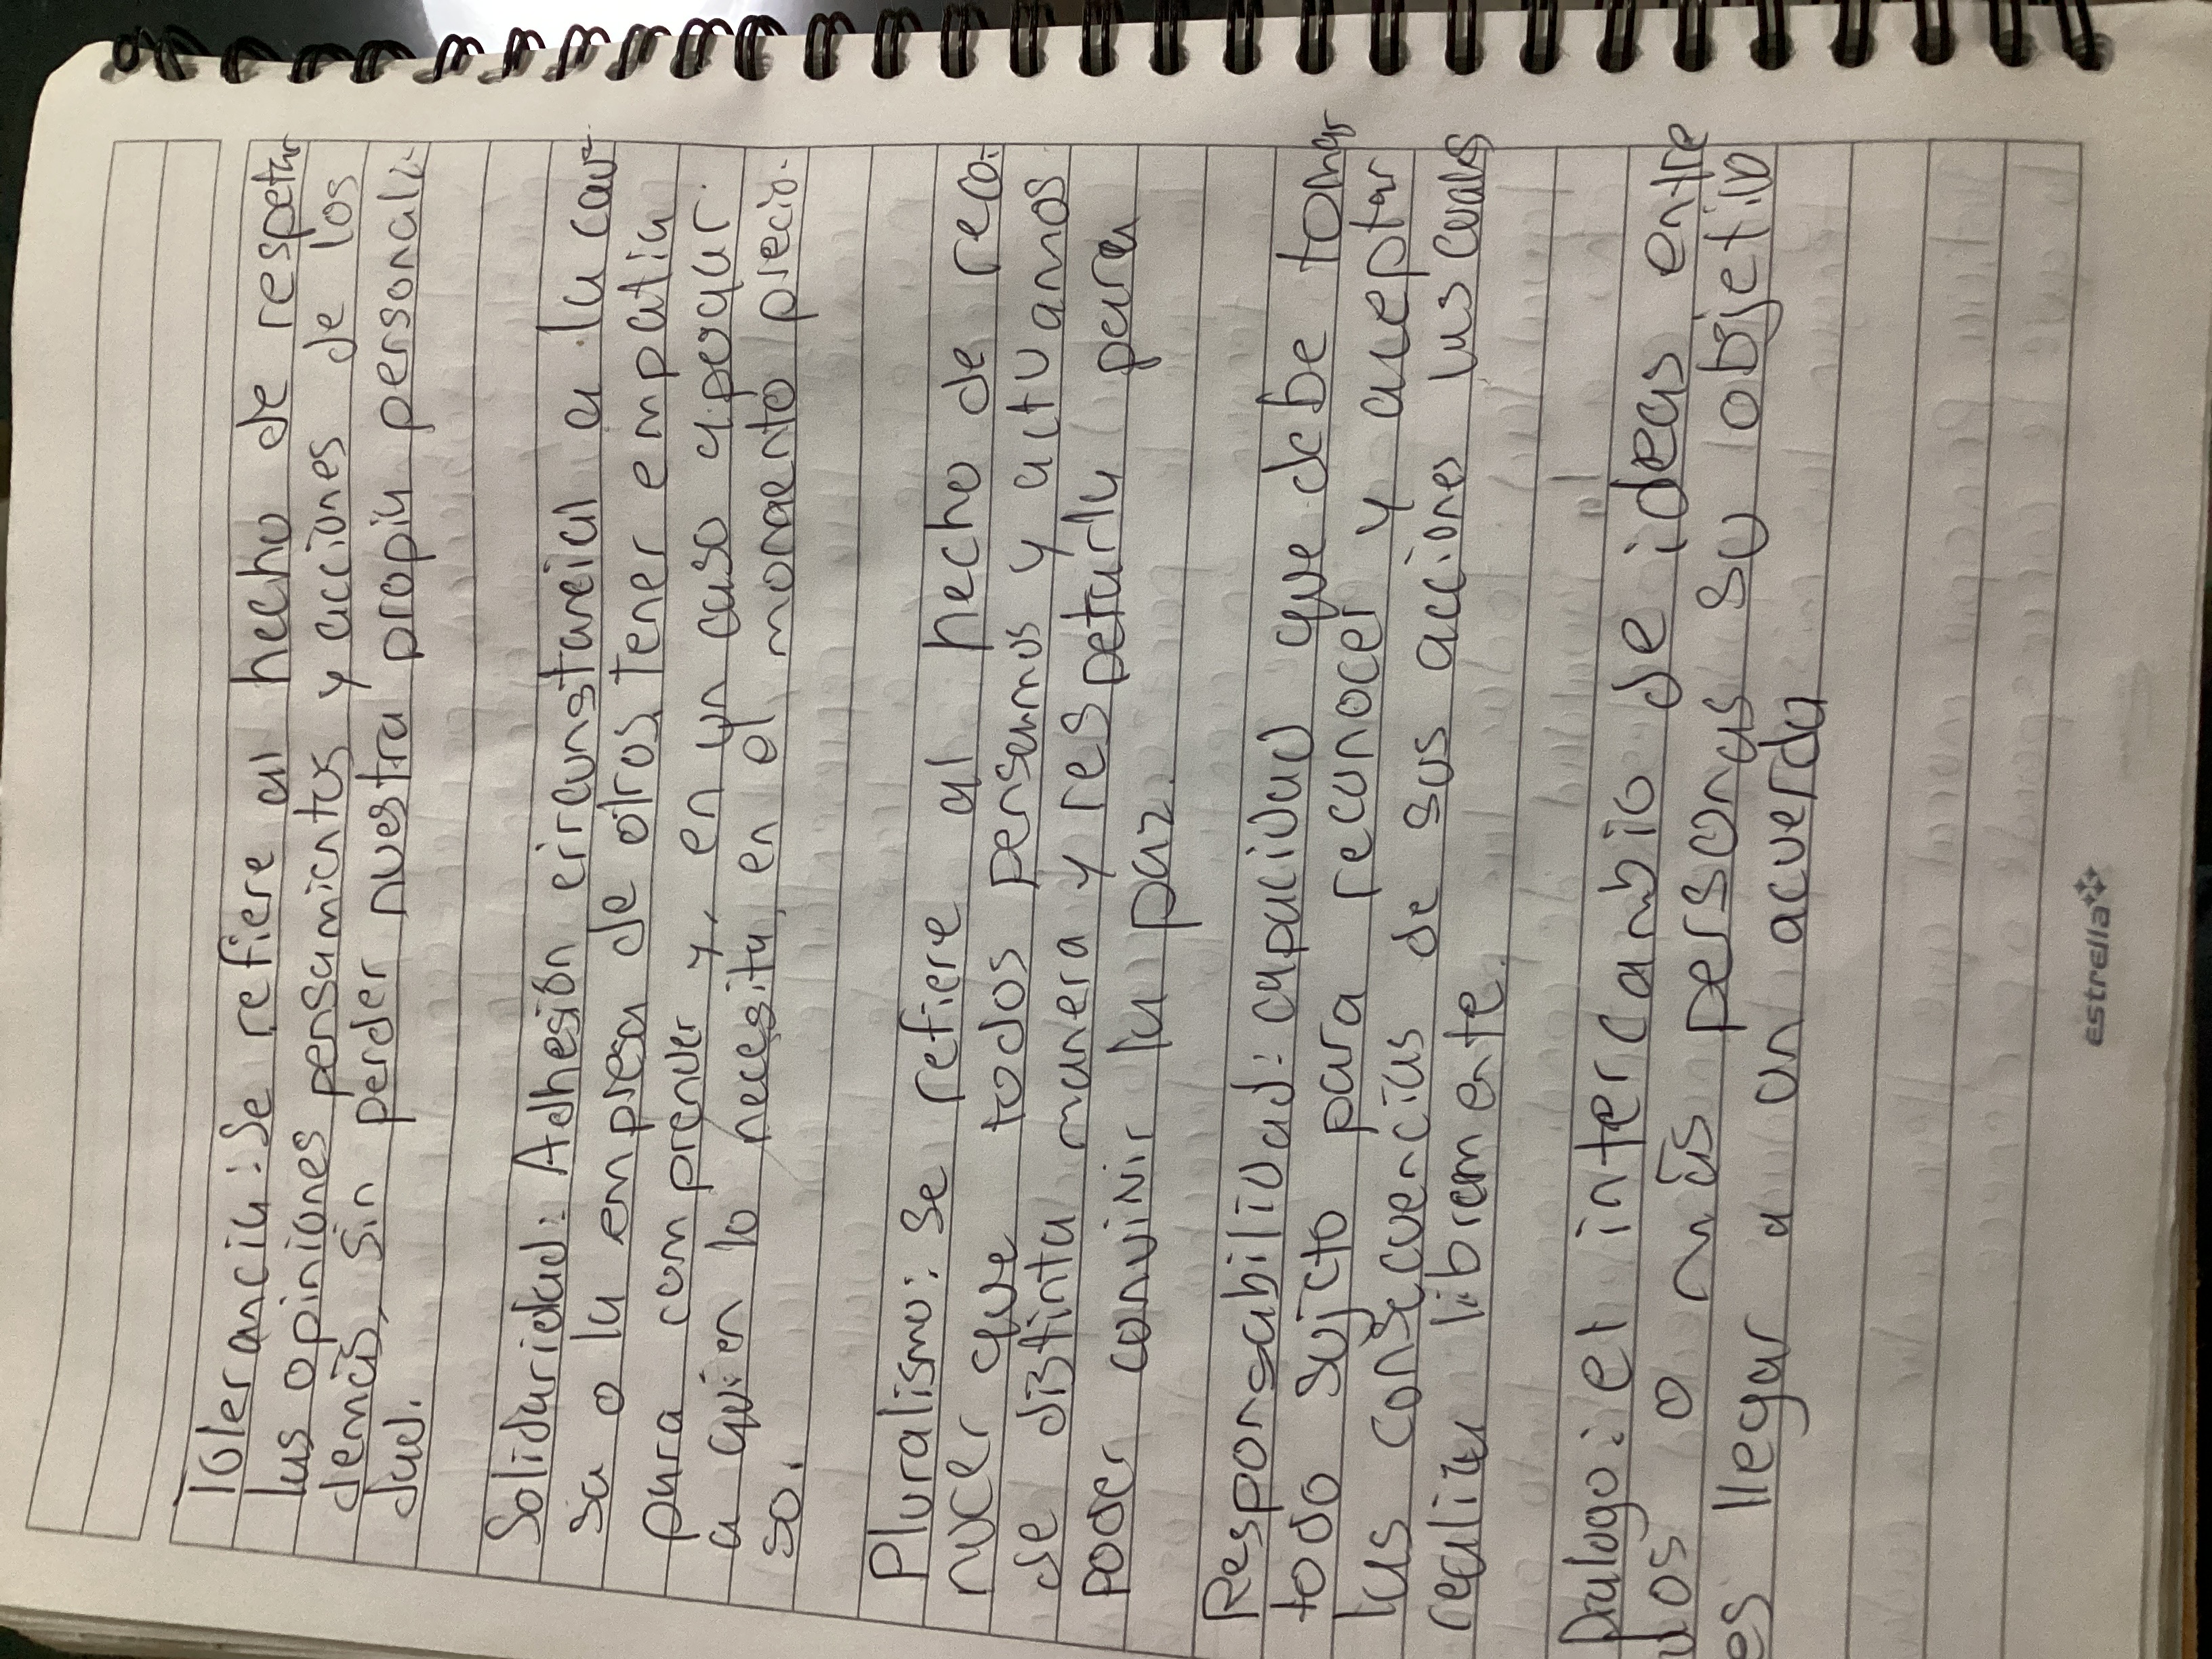 Tolerancia: Se refiere al hecho de respetar
las opiniones pensamientos y acciones de los
demás, sin perder nuestra propia personali-
dad.
Solidaridad: Adhesión circunstancial a la cau-
sa o la empresa de otros, tener empatia
para comprender y, en un caso apoyar
a quien lo necesita, en el momento preció-
so.
Pluralismo: Se refiere al hecho de reco-
nocer que todos pensamos y actuamos
de distinta manera y respetarla para
poder convivir la paz.
Responsabilidad: capacidad que debe tomar
todo sujeto para reconocer y aceptar
las consecuencias de sus acciones las cuales
realiza libremente.
Dialogo: el intercambio de ideas entre
dos o más personas su objetivo
es llegar a un acuerdo
estrella